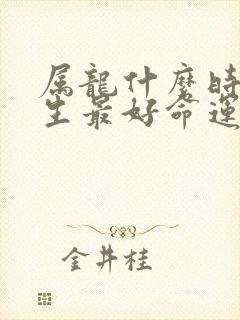 属龍什麼時
生最好命運
金井桂